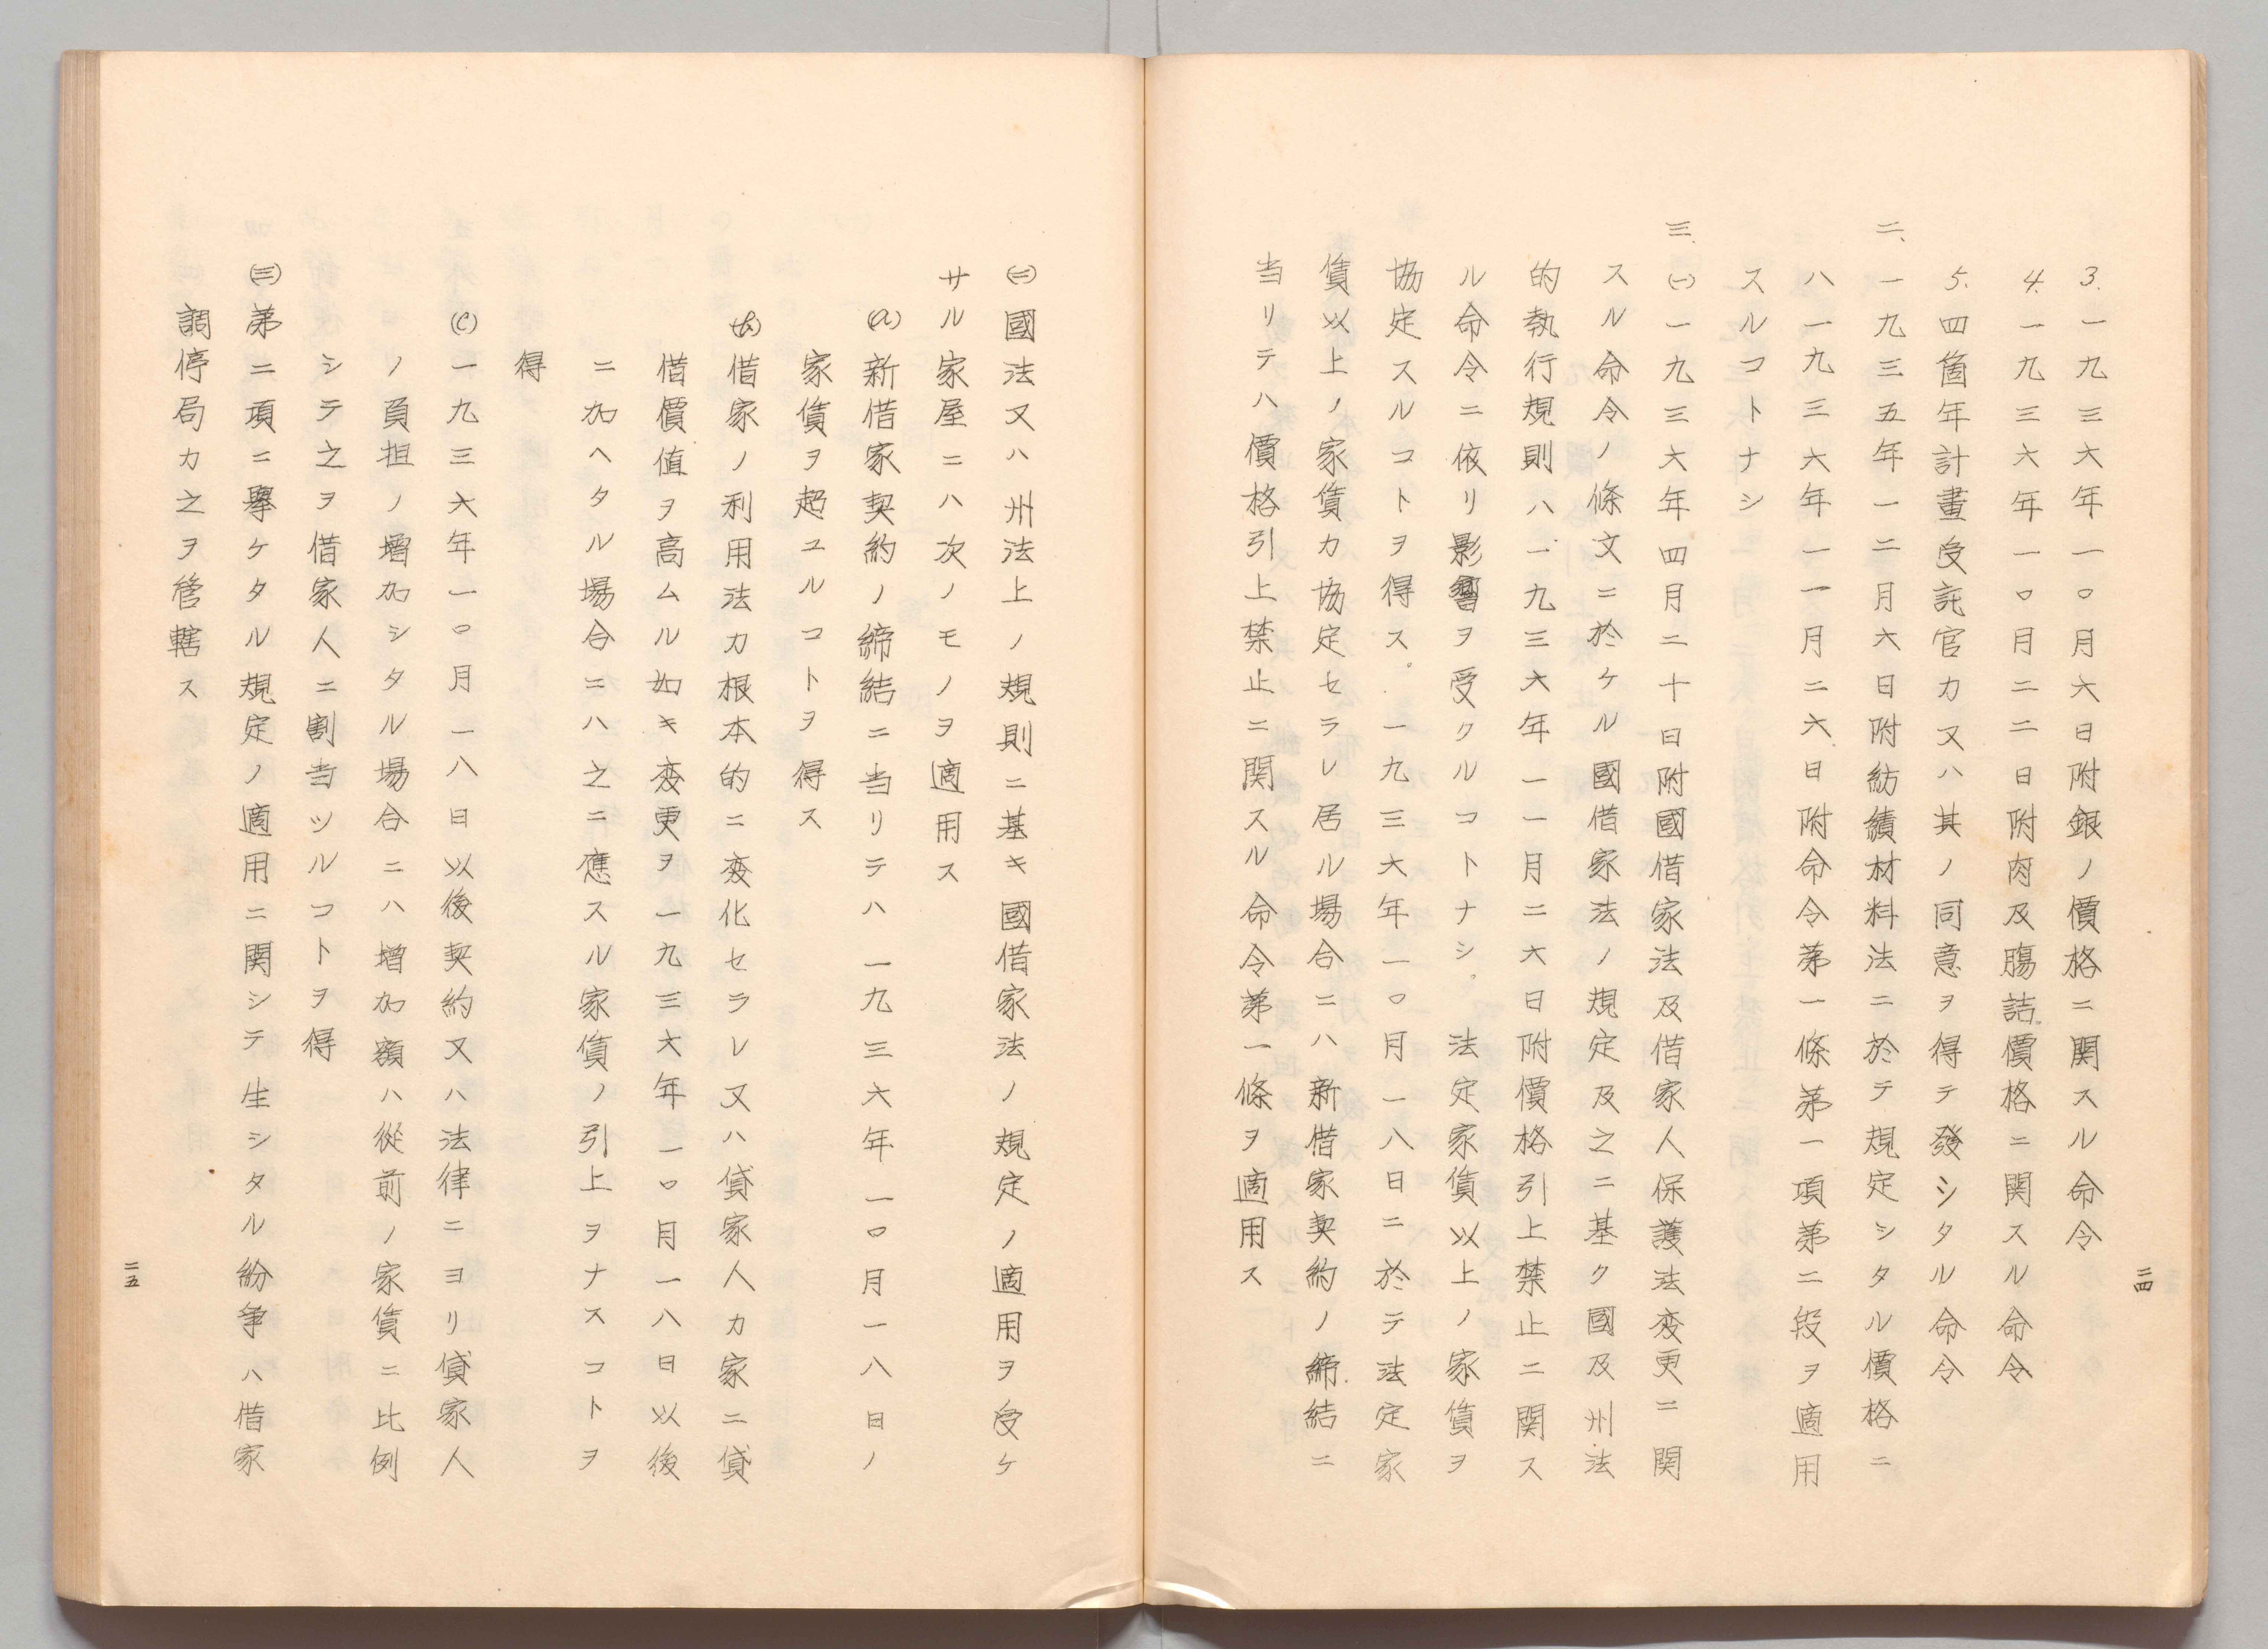 3.一九三六年一〇月六日附銀ノ價格ニ関スル命令
4.一九三六年一〇月二二日附肉及腸詰價格ニ関スル命令
5.四箇年計畫受託官カ又ハ其ノ同意ヲ得テ發シタル命令
二、一九三五年一二月六日附紡績材料法ニ於テ規定シタル價格ニ
ハ一九三六年一一月二六日附命令第一條第一項第二段ヲ適用
スルコトナシ
三、㈠一九三六年四月二十日附國借家法及借家人保護法変更ニ関
スル命令ノ條文ニ於ケル國借家法ノ規定及之ニ基ク國及州法
的執行規則ハ一九三六年一一月二六日附價格引上禁止ニ関ス
ル命令ニ依リ影響ヲ受クルコトナシ。法定家賃以上ノ家賃ヲ
協定スルコトヲ得ス。一九三六年一〇月一八日ニ於テ法定家
賃以上ノ家賃カ協定セラレ居ル場合ニハ新借家契約ノ締結ニ
当リテハ價格引上禁止ニ関スル命令第一條ヲ適用ス
二四
㈡國法又ハ州法上ノ規則ニ基キ國借家法ノ規定ノ適用ヲ受ケ
サル家屋ニハ次ノモノヲ適用ス
(a)新借家契約ノ締結ニ当リテハ一九三六年一〇月一八日ノ
家賃ヲ超ユルコトヲ得ス
(b)借家ノ利用法カ根本的ニ変化セラレ又ハ貸家人カ家ニ貸
借價値ヲ高ムル如キ変更ヲ一九三六年一〇月一八日以後
ニ加ヘタル場合ニハ之ニ應スル家賃ノ引上ヲナスコトヲ
得
(c)一九三六年一〇月一八日以後契約又ハ法律ニヨリ貸家人
ノ負担ノ増加シタル場合ニハ増加額ハ從前ノ家賃ニ比例
シテ之ヲ借家人ニ割当ツルコトヲ得
㈢第二項ニ擧ケタル規定ノ適用ニ関シテ生シタル紛争ハ借家
調停局カ之ヲ管轄ス
二五